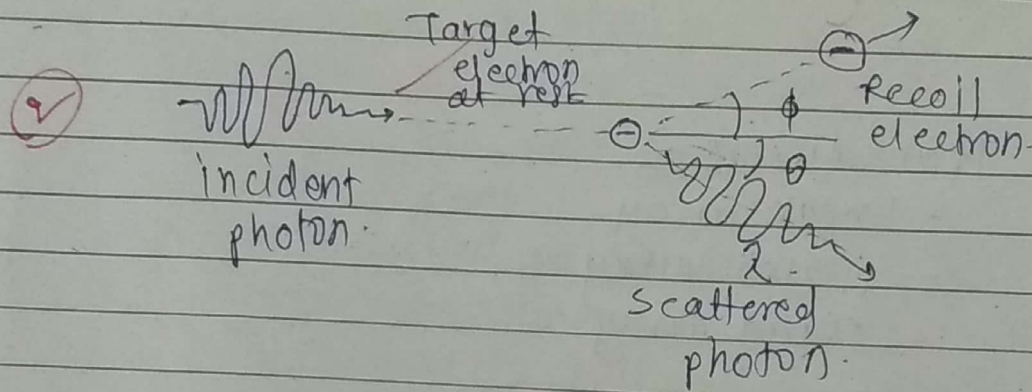 Target
electron
at rest
Recoil
electron.
ϕ
θ
incident
photon.
λ
scattered
photon.